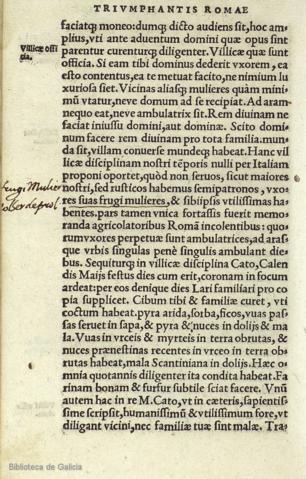 TRIVMPHANTIS ROMAE
faciatq; moneo: dumq; dicto audiens sit, hoc am-
plius, vti ante aduentum domini quæ opus sint
Villicæ offi
cia.
parentur curenturq; diligenter. Villicæ quæ sunt
officia. Si eam tibi dominus dederit vxorem, ea
esto contentus, ea te metuat facito, ne nimium lu
xuriosa siet. Vicinas aliasq; mulieres quàm mini-
mũ vtatur, neve domum ad se recipiat. Ad cœnam
nequo eat, neve ambulatrix sit. Rem diuinam ne
faciat iniussu domini, aut dominæ. Scito domi-
num facere rem diuinam pro tota familia. mun-
da sit, villam conuerse mundeq; habeat. Hanc vil
licæ disciplinam nostri tẽporis nulli per Italiam
proponi oportet, quòd non seruos, sicut maiores
nostri, sed rusticos habemus semipatronos, vxo-
frugi Mulier
res suas frugi mulieres, & sibiipsis vtilissimas ha-
bentes. pars tamen vnica fortassis fuerit memo-
randa agricolatoribus Romã incolentibus: quo-
rum vxores perpetuæ sunt ambulatrices, ad aras-
que vrbis singulas penè singulis ambulant die-
bus. Sequiturq; in villicæ disciplina Cato, Calen
dis Maijs festus dies cum erit, coronam in focum
ardeat: per eos denique dies Lari familiari pro co
pia supplicet. Cibum tibi & familiæ curet, vti
coctum habeat. pyra arida, sorba, ficos, vuas pas-
sas seruet in sapa, & pyra & nuces in dolijs & ma
la. Vuas in vrceis & myrteis in terra obrutas, &
nuces prænestinas recentes in vrceo in terra ob-
rutas habeat, mala Scantiniana in dolijs. Hæc o-
mnia quotannis diligenter ita condita habeat. Fa
rinam bonam & furfur subtile sciat facere. Vnũ
autem hac in re M. Cato, vt in cæteris, sapientis-
sime scripsit, humanissimũ & vtilissimum fore, vt
diligant vicini, nec familiæ tuæ sint malæ. Tra-
Biblioteca de Galicia